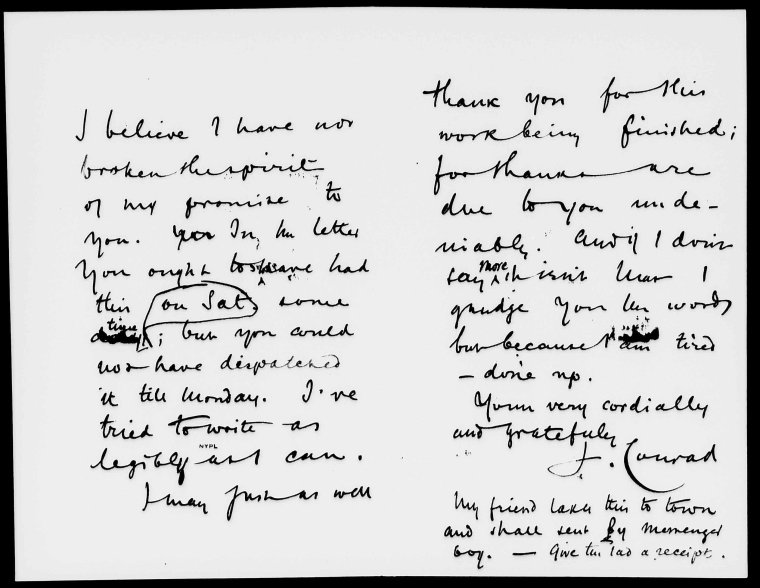 I believe I have not
broken the spirit
of my promise to
you. In the letter
you ought to have had
this on Sat. some
time; but you could
not have dispatched
it till Monday. I've
tried to write as
legibly as I can.
NYPL
I may just as well
thank you for this
work being finished;
for thanks are
due to you unde-
niably. And if I don't
say more it isn't that I
grudge you the words
but because I am tired
— done up.
Yours very cordially
and gratefully
J. Conrad
My friend takes this to town
and shall sent by messenger
boy. — Give the lad a receipt.